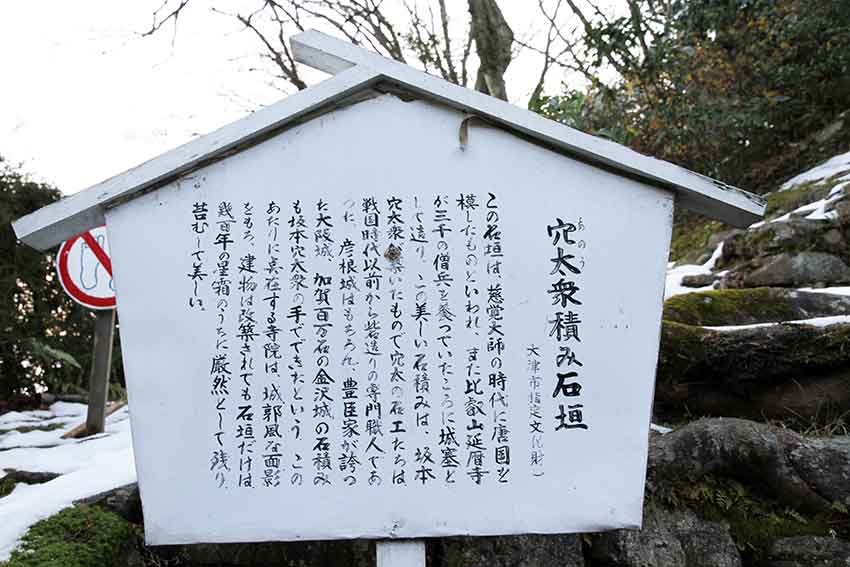 あのう
穴太衆積み石垣
大津市指定文化財
この石垣は、慈覚大師の時代に唐国を
模したものといわれ、また比叡山延暦寺
が三千の僧兵を養っていたころに城塞と
して造り、この美しい石積みは、坂本
穴太衆が築いたもので穴太の石工たちは
戦国時代以前から砦造りの専門職人であ
った、彦根城はもちろん、豊臣家が誇っ
た大阪城、加賀百万石の金沢城の石積み
も坂本穴太衆の手でできたという、この
あたりに点在する寺院は、城郭風な面影
をもち、建物は改築されても石垣だけは
幾百年の星霜のうちに厳然として残り、
苔むして美しい。